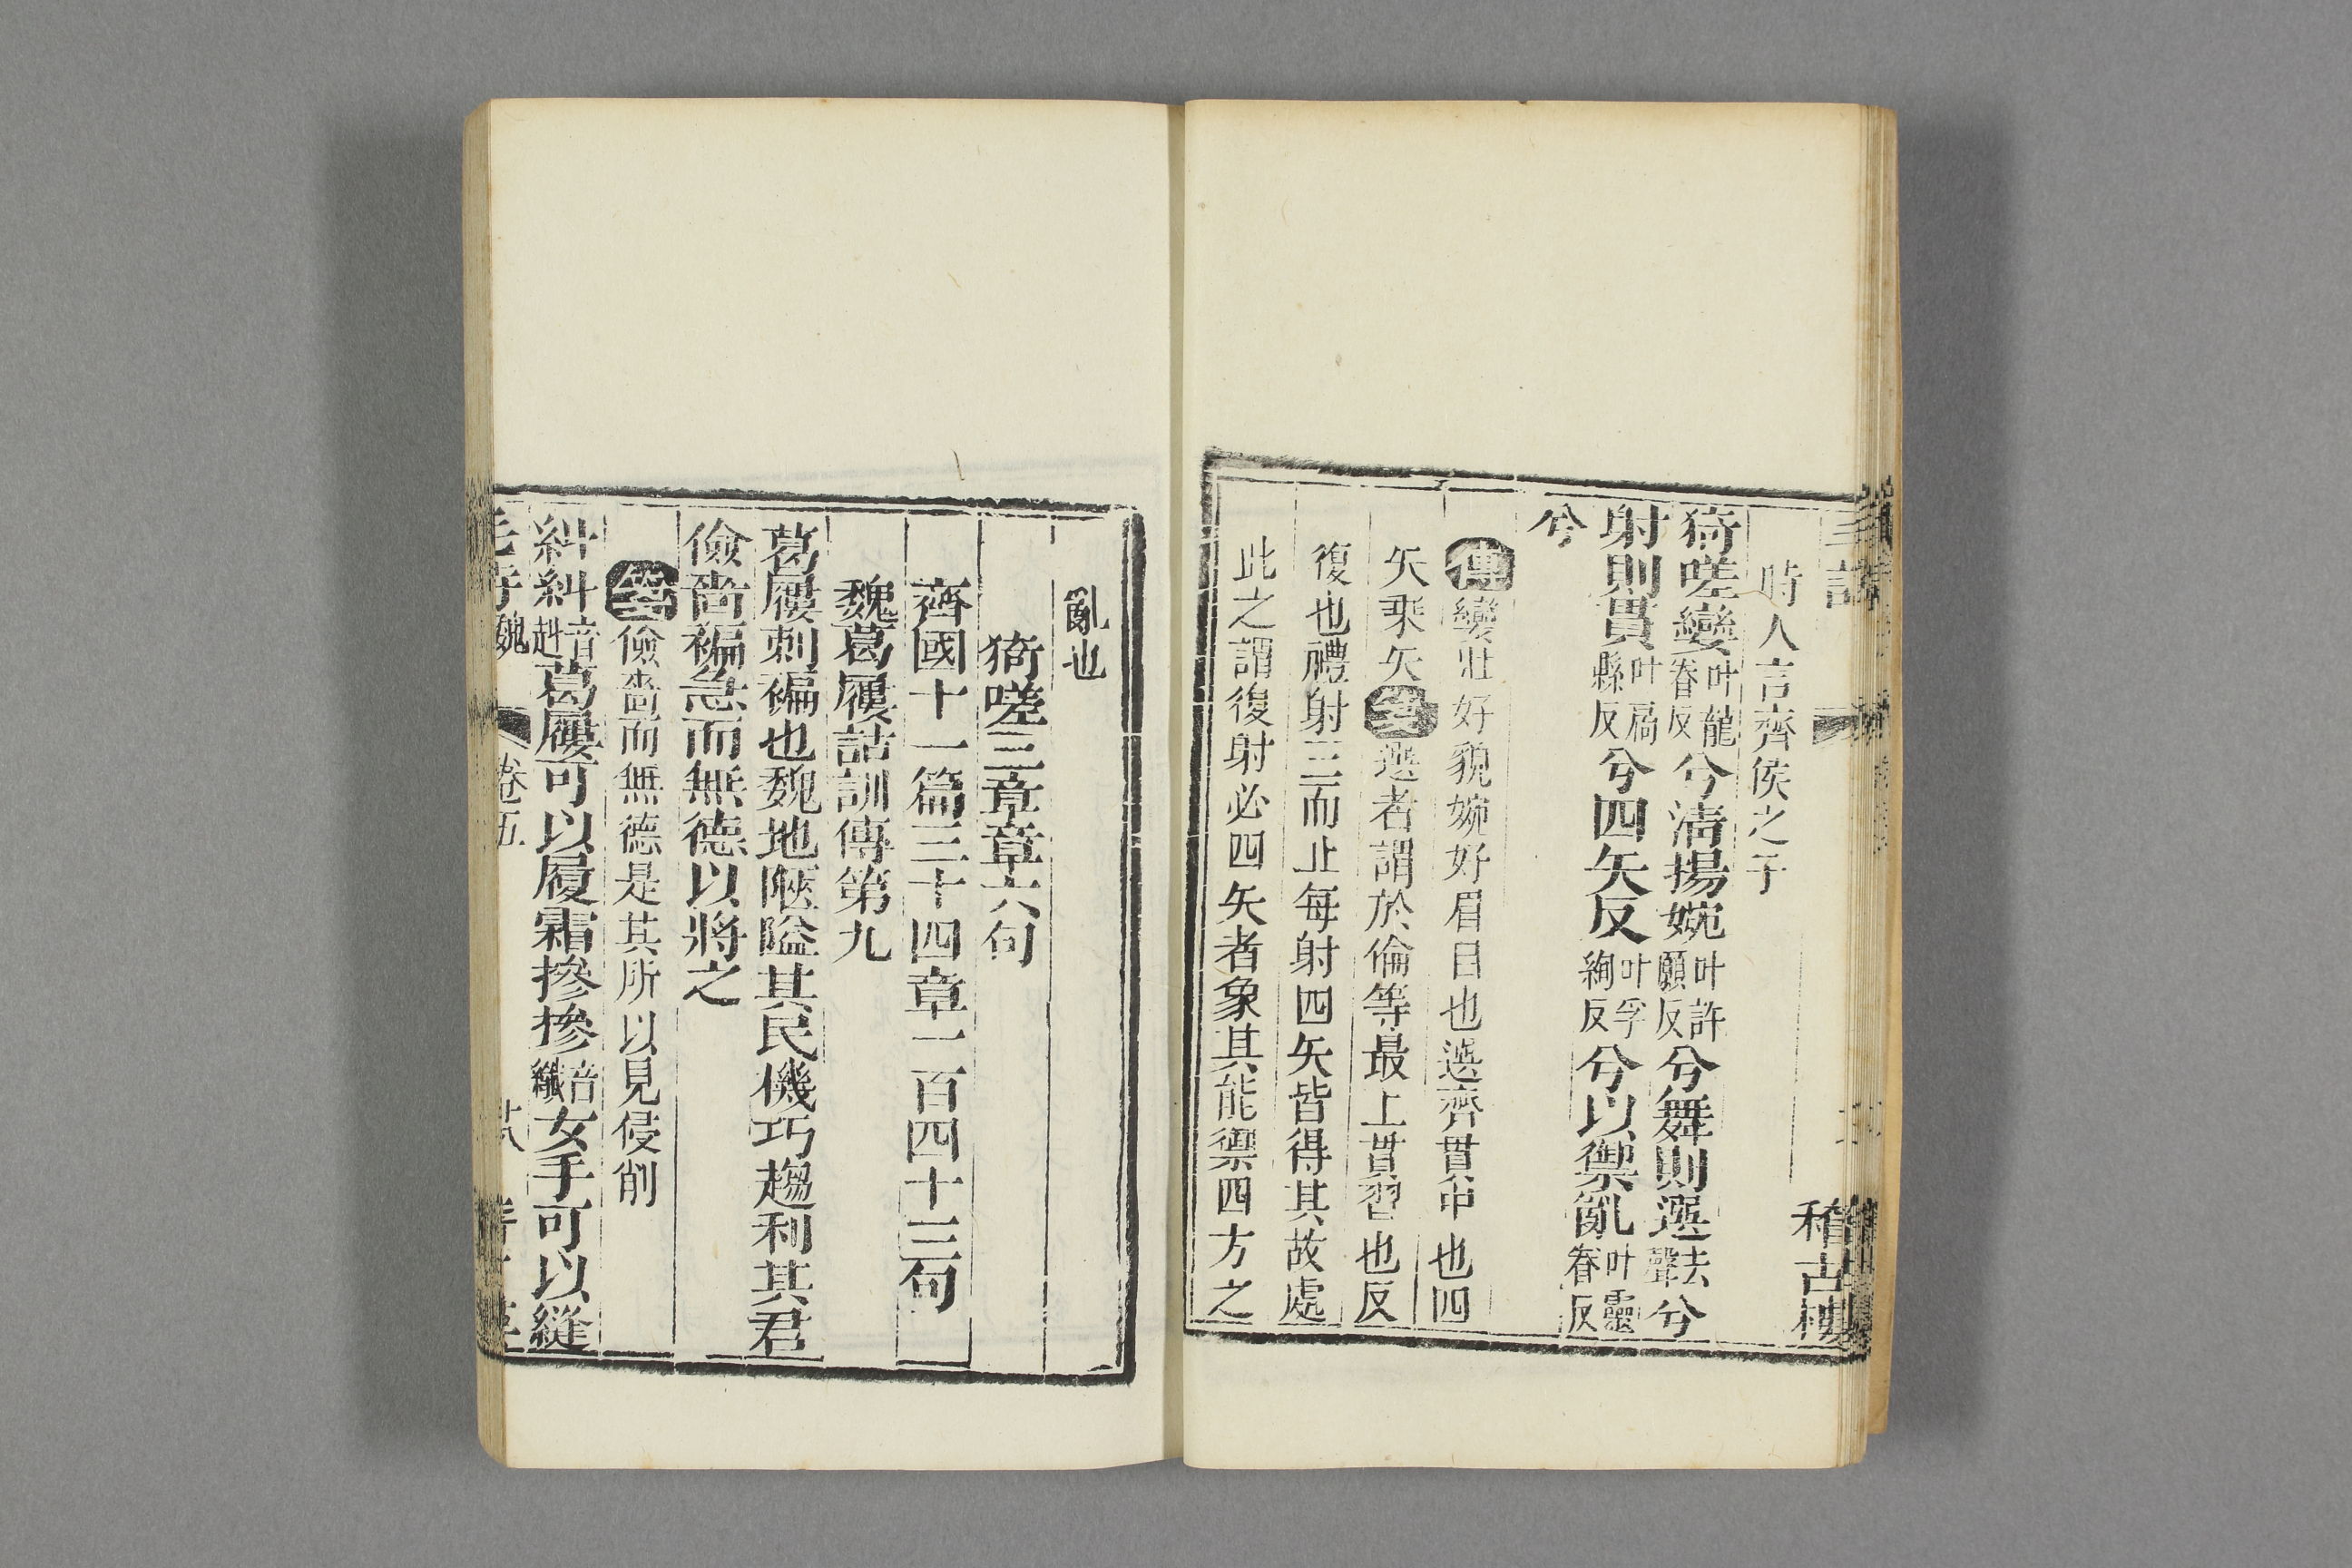 時人言齊侯之子
稽古樓
猗嗟孌叶龍眷反兮清揚婉叶許願反兮舞則選去聲兮
射則貫叶扃縣反兮四矢反叶孚絢反兮以禦亂叶靈眷反
兮
傳孌壯好貌婉好眉目也選齊貫中也四
矢乘矢箋選者謂於倫等最上貫習也反
復也禮射三而止每射四矢皆得其故處
此之謂復射必四矢者象其能禦四方之
亂也
猗嗟三章章六句
齊國十一篇三十四章一百四十三句
魏葛屨詁訓傳第九
葛屨刺褊也魏地陿隘其民機巧趨利其君
儉嗇褊急而無德以將之
箋儉嗇而無德是其所以見侵削
糾糾音赳葛屨可以履霜摻摻音纖女手可以縫
魏
卷五
十八